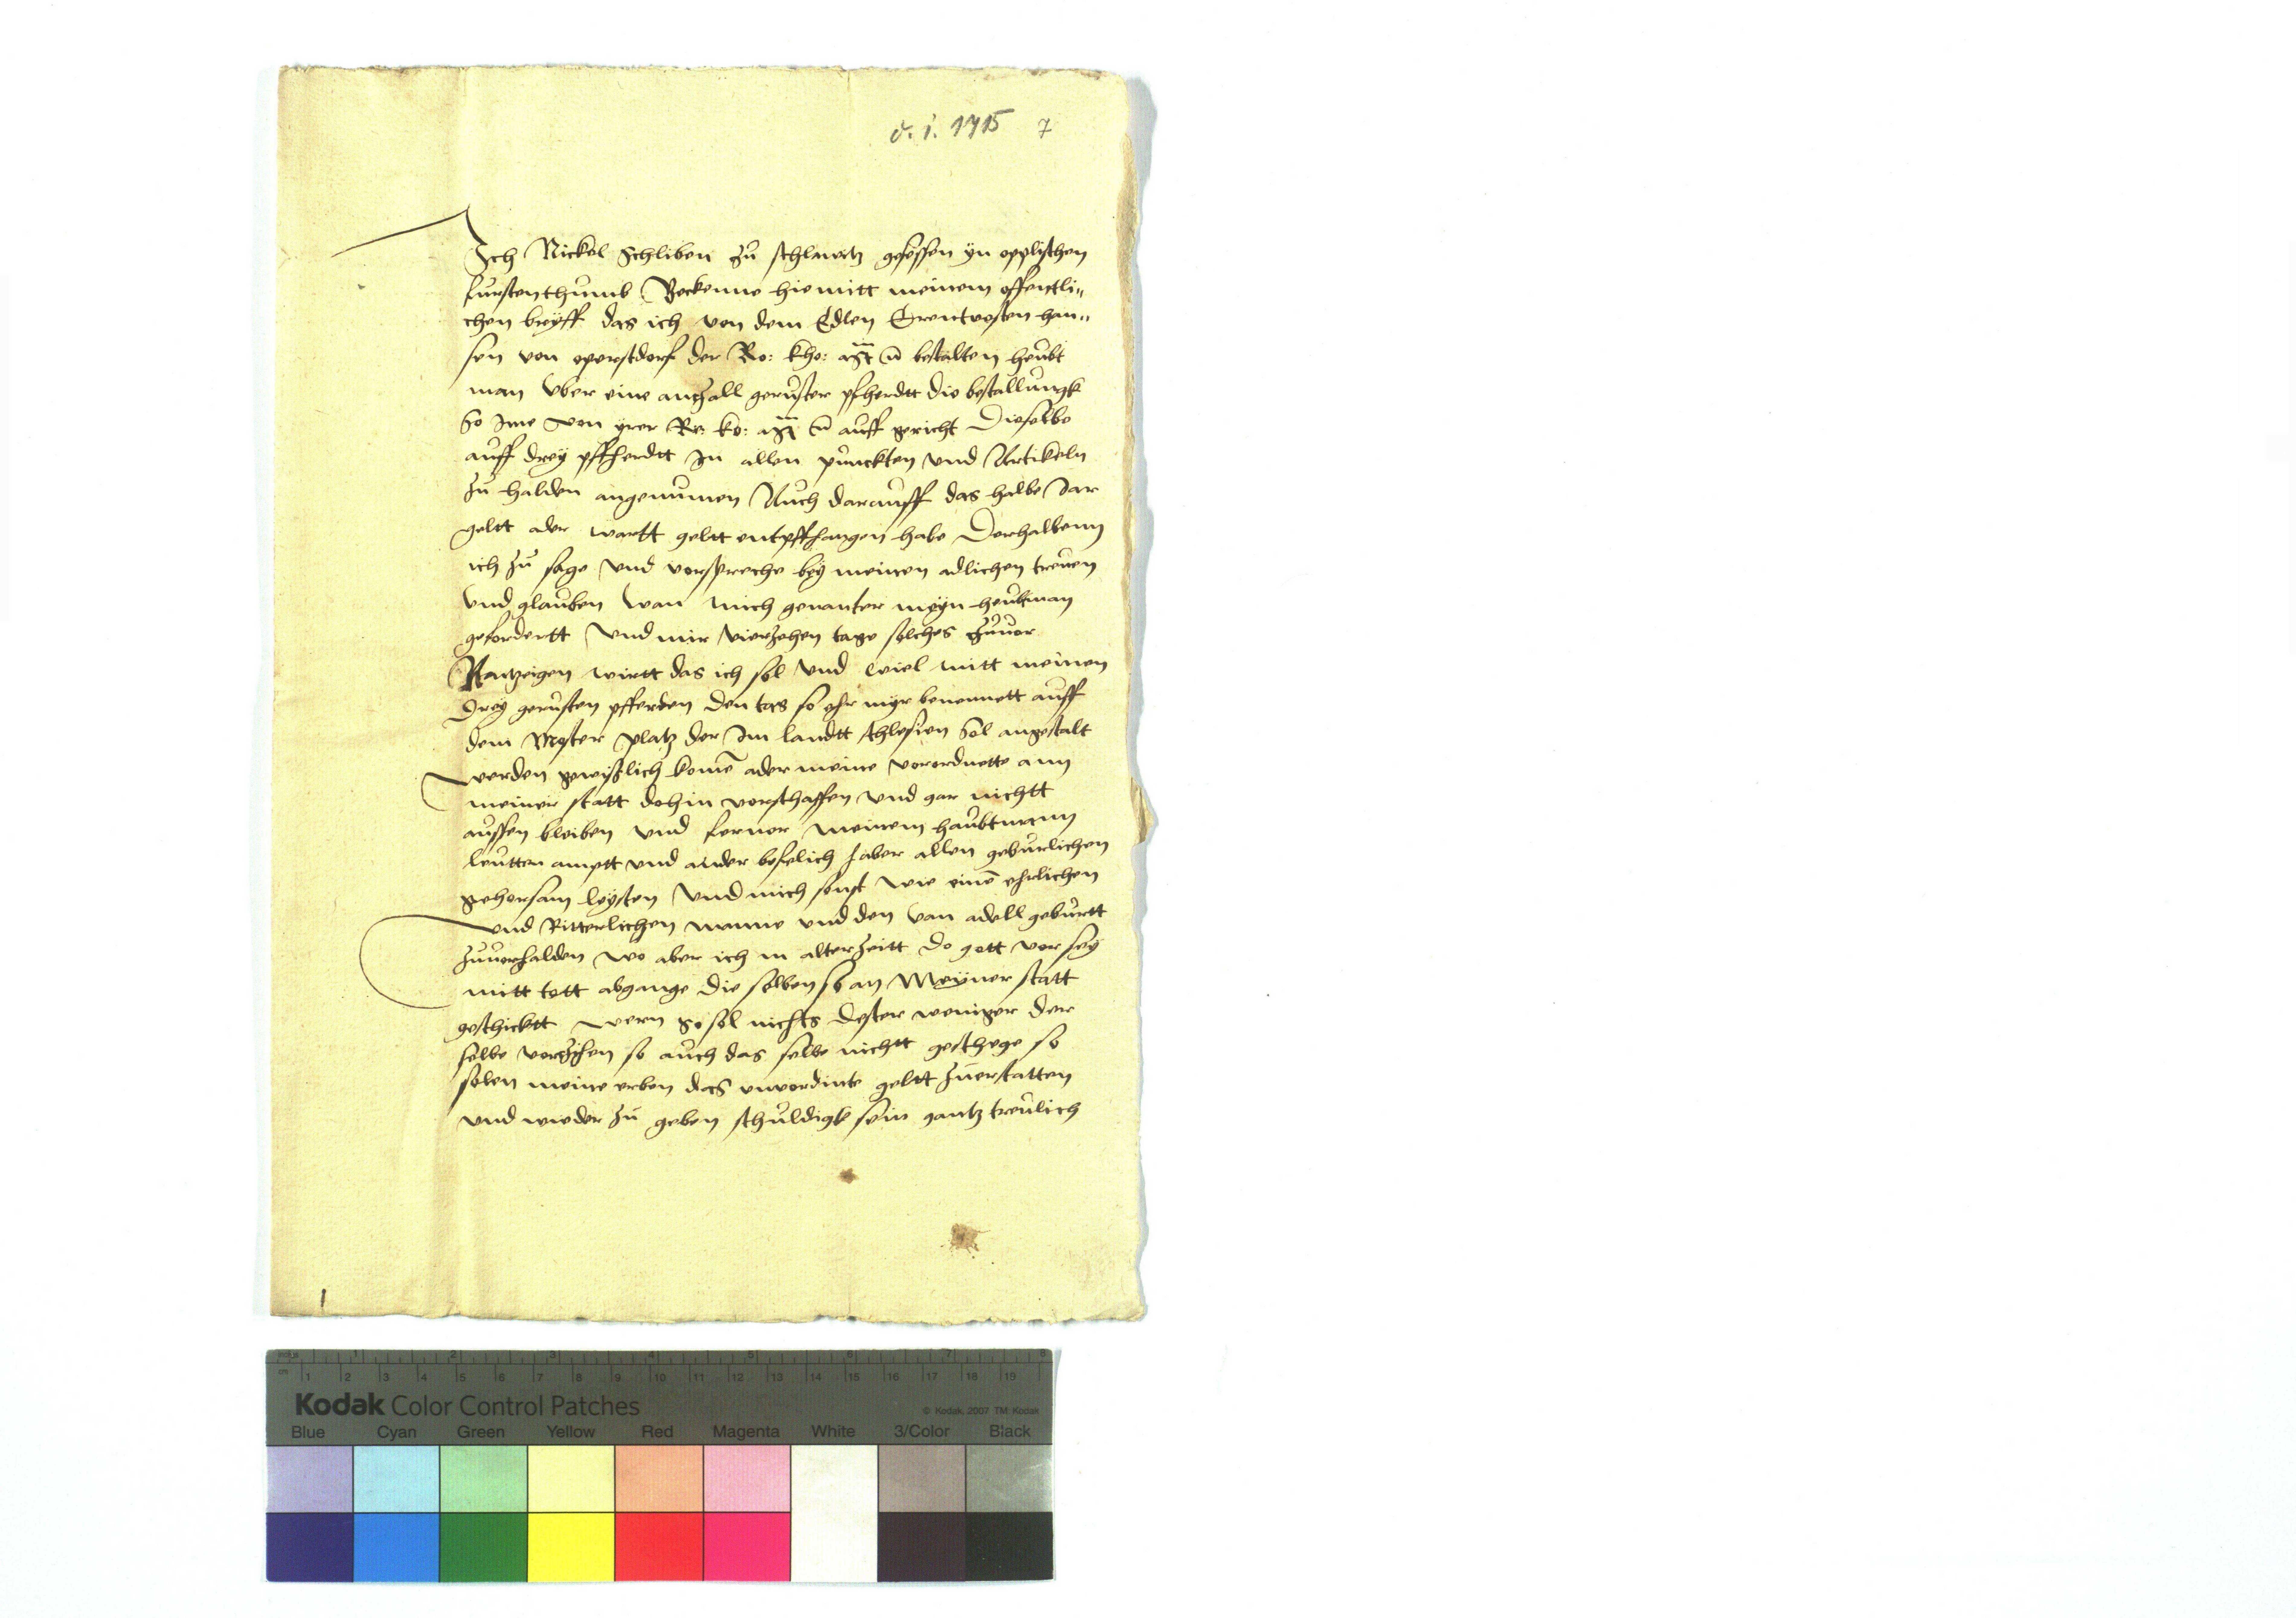 d. i. 1715 7
Ich Nickel Schliben zu schlawtz gesessen yn opplischen
furstenthumb Beckenne hiemitt meinem offentli„
chen bryff das ich von dem Edlen Erentvesten han„
sen von operstdorf der Ro: kho: bestalten heubt
man Vber eine antzall geruster pfherdtt die bestallungk
So Ime von yrer Ro: ko: auff gericht Dieselbe
auff drey pffherdtt In allen punckten vnd Artikeln
zu halden angenumen Auch darauff das halbe Jar
geltt ader wartt geltt entpffhangen habe Derhalbenn
ich zu sage vnd vorspreche bey meinen adlichen treuen
vnd glauben wan mich genanter meyn heubtman
gefordertt vnd mir vierzehen tage solches zuuor
wirtt das ich sol vnd wiel mitt meinen
Drey gerusten pfferden den tag so ehr myr benennett auff
dem Moster platz der Im landtt schlesien Sol angestalt
werden gewißlich komē ader meine vorordnette ann
meiner statt dohin vorschaffen vnd gar nichtt
aussen bleiben vnd ferner meinem haubtmann
leutten amptt vnd ander befelich haber allen geburlichen
gehorsam leysten vnd mich sonst wie einē ehrlichen
vnd Ritterlichen manne vnd den van adell geburtt
zuuorhalden wo aber ich in alter zeitt do gott vor sey
mitt tott abgange die selben so an Meyner statt
geschicktt wern so sol nichts dester weniger der
selbe vorzihen so auch das selbe nichtt geschege so
solen meine erben das vnvordinte geltt zuerstatten
vnd wieder zu geben schuldigk sein gantz treulich
1
Kodak Color Control Patches
© Kodak, 2007 TM: Kodak
Blue Cyan Green Yellow Red Magenta White 3/Color Black